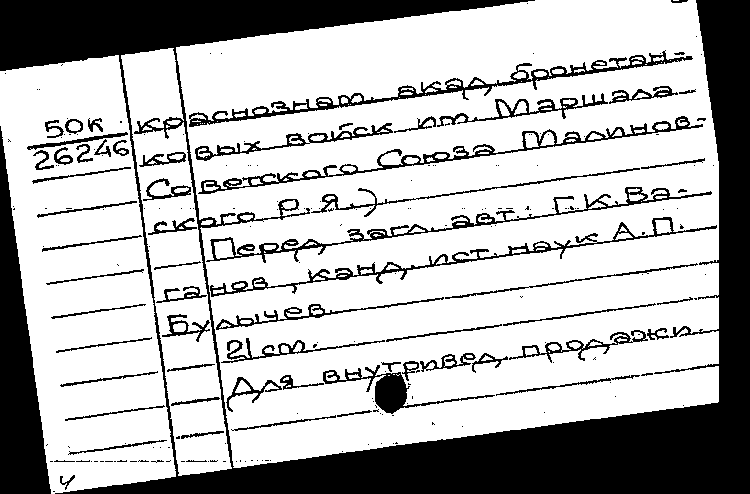 50к
26246
краснознам. акад. бронетан-
ковых войск им. Маршала
Советского Союза Малинов-
ского Р.Я.).
Перед загл. авт.: Г.К.Ва-
ганов, канд. ист. наук А.П.
Булычев.
21 см.
Для внутривед. продажи.